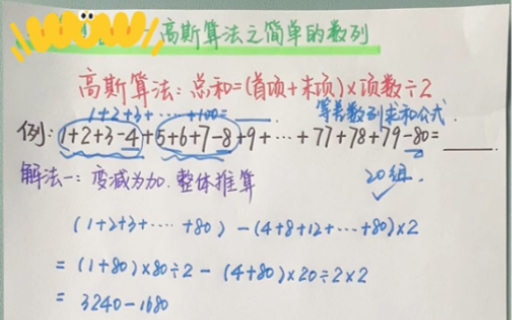 WOW
高斯算法之简单的数列
高斯算法:总和=(首项+末项)×项数÷2
1+2+3+······+100=
等差数列求和公式.
例:1+2+3-4+5+6+7-8+9+···+77+78+79-80=____
解法一:变减为加.整体推算
20组.
(1+2+3+····+80)-(4+8+12+···+80)×2
=(1+80)×80÷2-(4+80)×20÷2×2
= 3240-1680